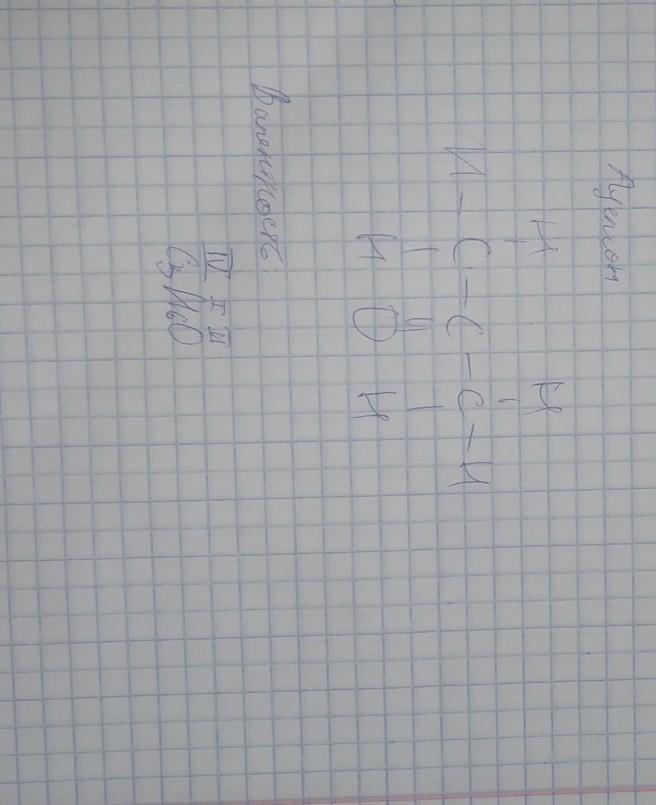 Ацетон
H H
H – C – C – C – H
H O H
Валентность:
IV I II
C3H6O